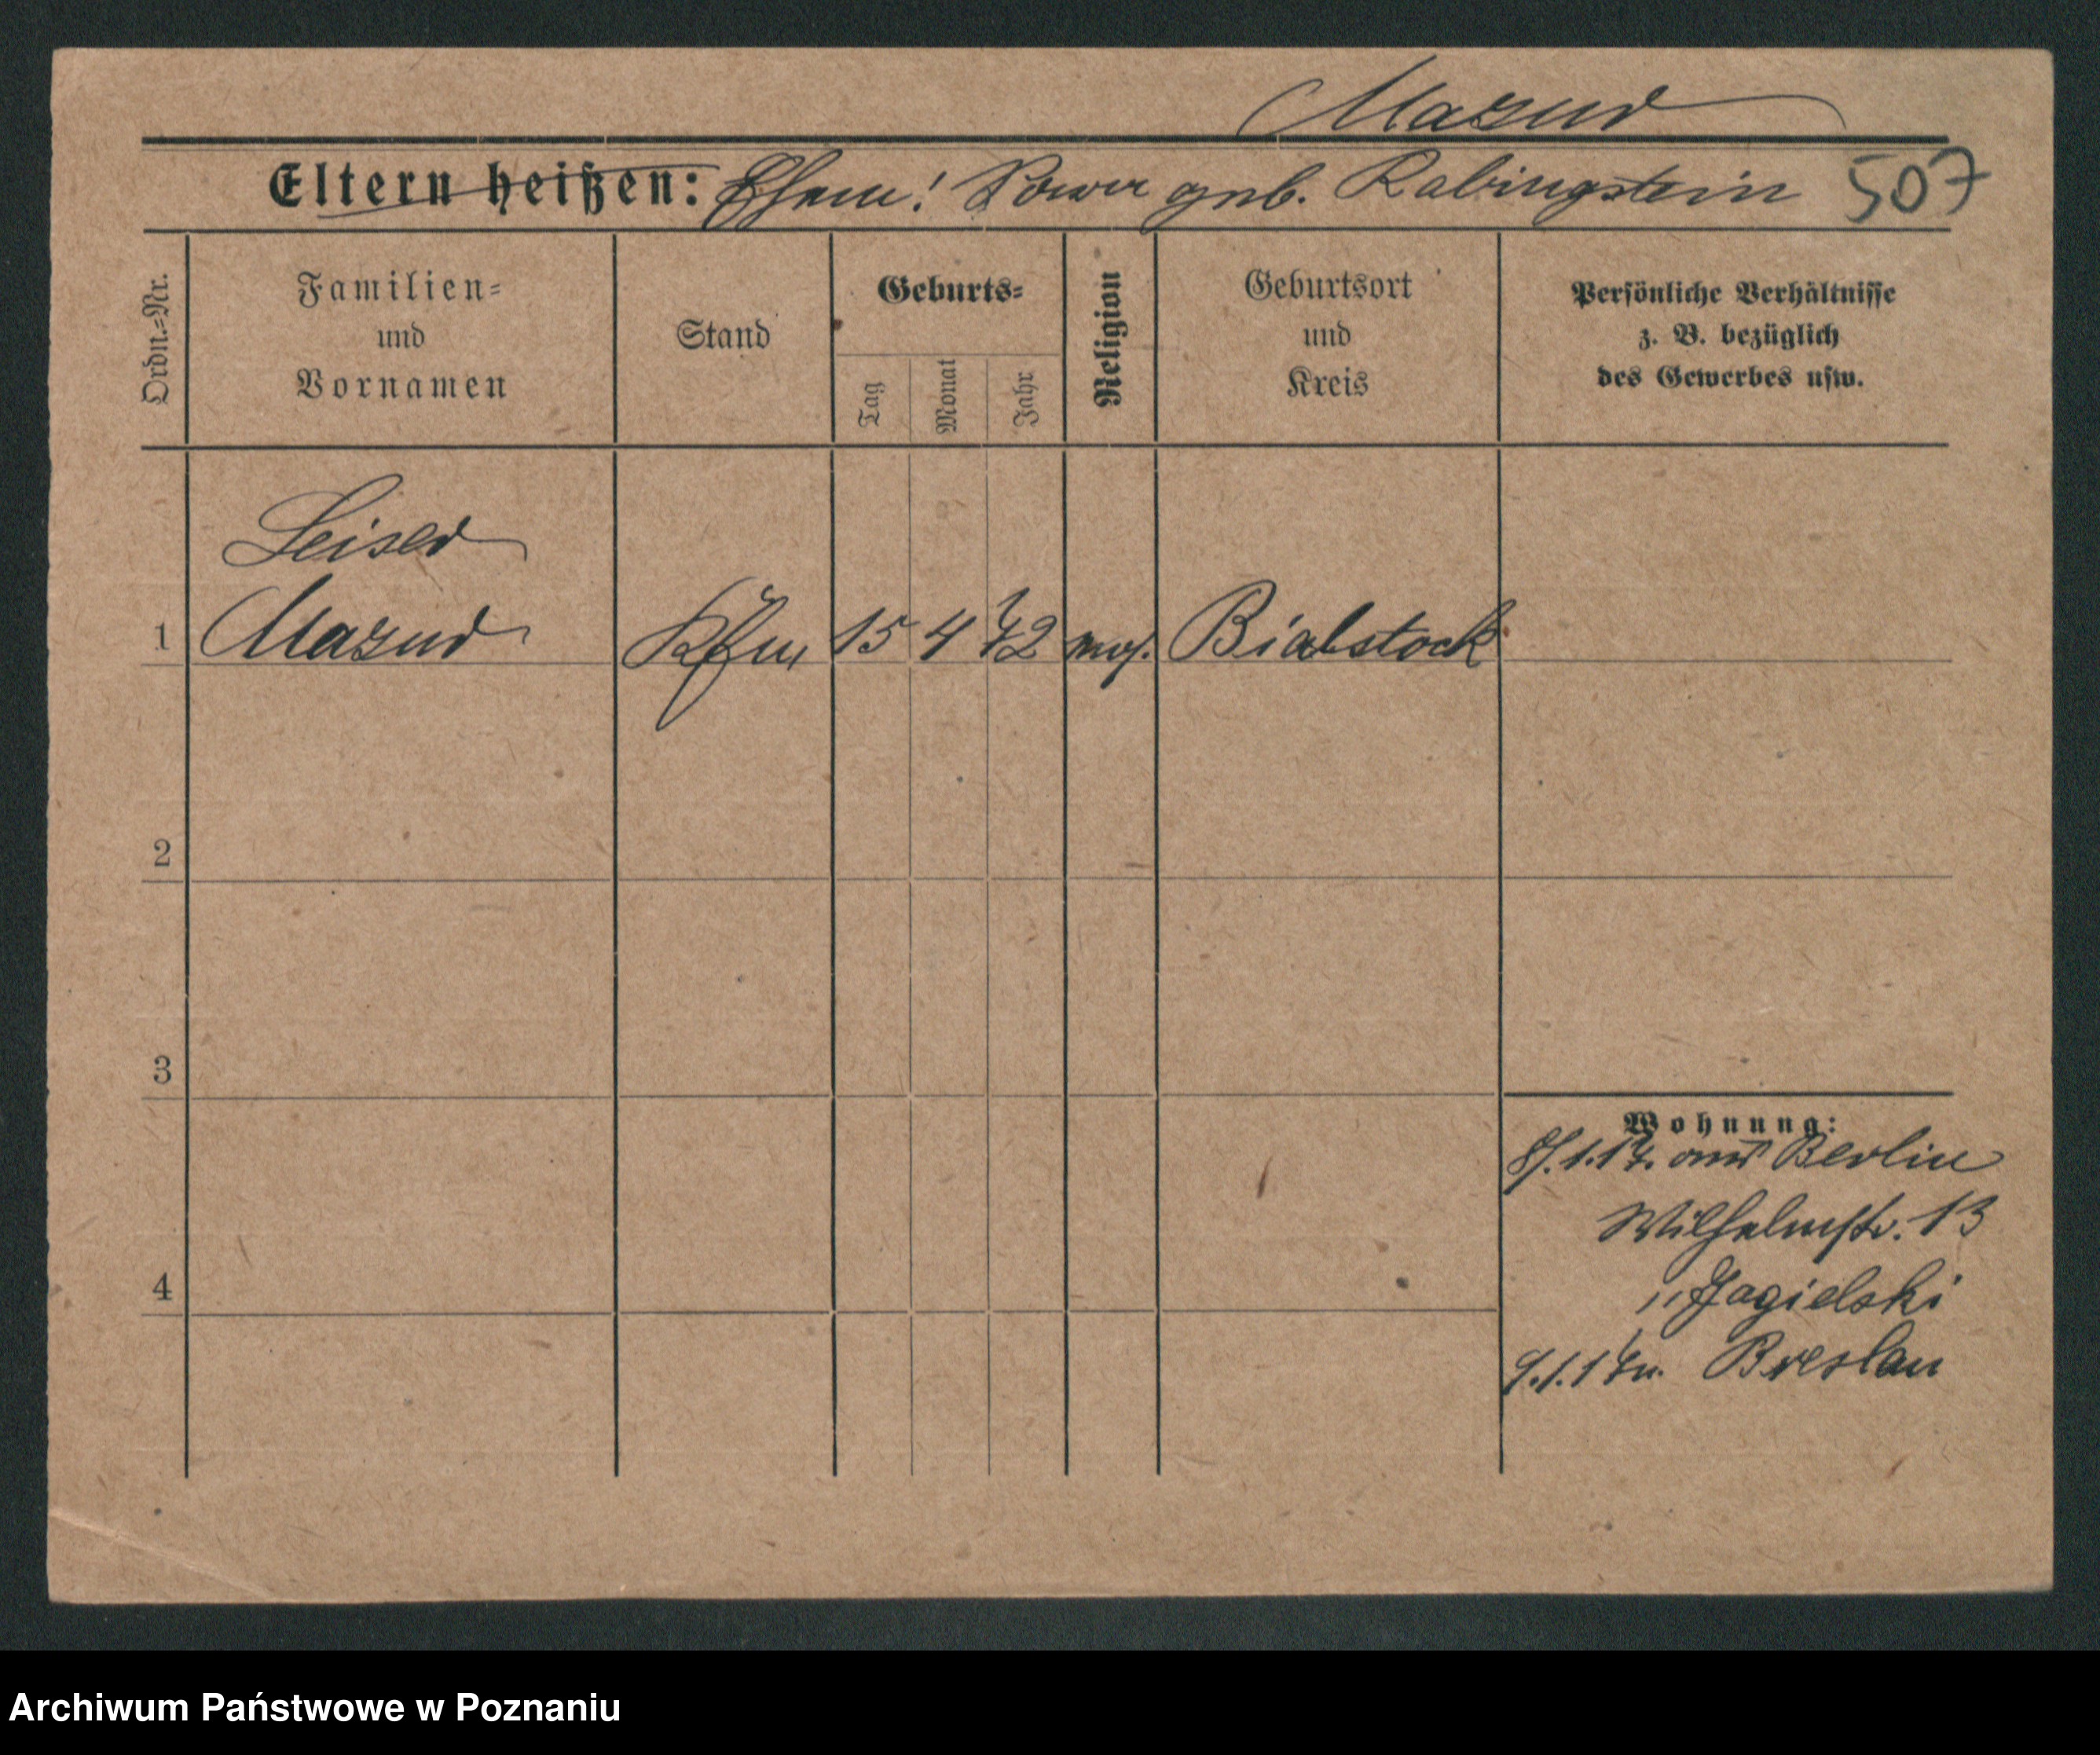 Mazur
Eltern heißen: Ehem! Sowa geb. Rabingstein 507
Ordn.=Nr.
Familien=
und
Vornamen
Stand
Geburts=
Tag
Monat
Jahr
Religion
Geburtsort
und
Kreis
Persönliche Verhältnisse
z. B. bezüglich
des Gewerbes usw.
Leiser
1 Mazur Kfm 15 4 72 mos. Bialstock
2
3
Wohnung:
8/.1.17. aus Berlin
Wilhelmstr. 13
" Jagielski
4
9.1.17 n. Breslau
Archiwum Państwowe w Poznaniu